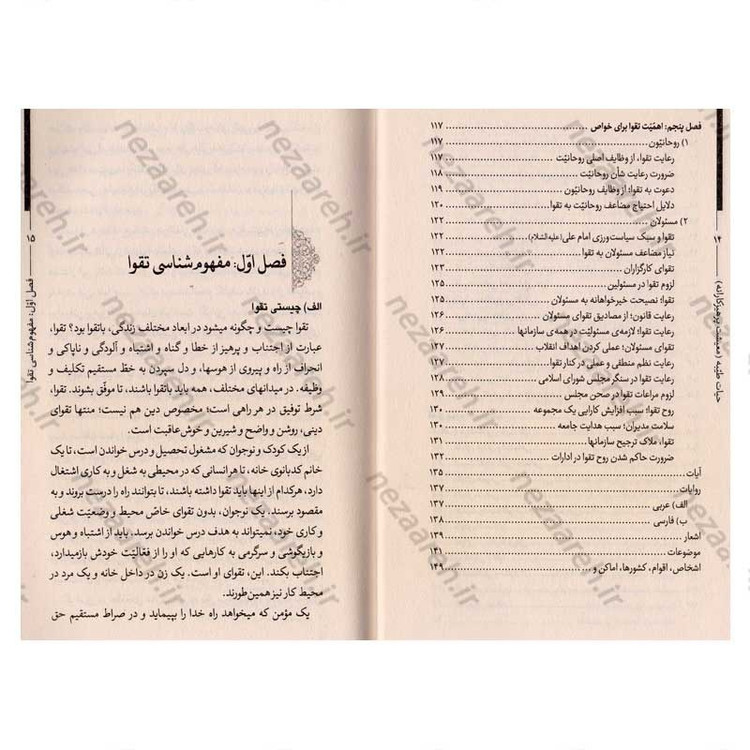 ۱۴
حیات طیّبه (معیشت پرهیزکارانه)
فصل پنجم: اهمّیّت تقوا برای خواص ........ ۱۱۷
۱) روحانیّون ........ ۱۱۷
رعایت تقوا، از وظایف اصلی روحانیّت ........ ۱۱۷
ضرورت رعایت شأن روحانیّت ........ ۱۱۸
دعوت به تقوا؛ از وظایف روحانیّون ........ ۱۱۹
دلایل احتیاج مضاعف روحانیّت به تقوا ........ ۱۲۰
۲) مسئولان ........ ۱۲۲
تقوا و سبک سیاست‌ورزی امام علی (علیه‌السّلام) ........ ۱۲۲
نیاز مضاعف مسئولان به تقوا ........ ۱۲۲
تقوای کارگزاران ........ ۱۲۳
لزوم تقوا در مسئولین ........ ۱۲۵
تقوا؛ نصیحت خیرخواهانه به مسئولان ........ ۱۲۵
رعایت قانون؛ از مصادیق تقوای مسئولان ........ ۱۲۶
رعایت تقوا؛ لازمه‌ی مسئولیّت در همه‌ی سازمانها ........ ۱۲۶
تقوای مسئولان؛ عملی کردن اهداف انقلاب ........ ۱۲۷
رعایت نظم منطقی و عملی در کنار تقوا ........ ۱۲۸
رعایت تقوا در سنگر مجلس شورای اسلامی ........ ۱۲۸
لزوم مراعات تقوا در صحن مجلس ........ ۱۲۹
روح تقوا؛ سبب افزایش کارایی یک مجموعه ........ ۱۳۰
سلامت مدیران؛ سبب هدایت جامعه ........ ۱۳۰
تقوا، ملاک ترجیح سازمانها ........ ۱۳۱
ضرورت حاکم شدن روح تقوا در ادارات ........ ۱۳۲
آیات ........ ۱۳۵
روایات ........ ۱۳۷
الف) عربی ........ ۱۳۷
ب) فارسی ........ ۱۳۸
اشعار ........ ۱۳۹
موضوعات ........ ۱۴۱
اشخاص، اقوام، کشورها، اماکن و ........ ۱۴۹
۱۵
فصل اوّل: مفهوم‌شناسی تقوا
فصل اوّل: مفهوم‌شناسی تقوا
الف) چیستی تقوا
تقوا چیست و چگونه میشود در ابعاد مختلف زندگی، باتقوا بود؟ تقوا،
عبارت از اجتناب و پرهیز از خطا و گناه و اشتباه و آلودگی و ناپاکی و
انحراف از راه و پیروی از هوسها، و دل سپردن به خطّ مستقیم تکلیف و
وظیفه. در میدانهای مختلف، همه باید باتقوا باشند، تا موفّق بشوند. تقوا،
شرط توفیق در هر راهی است؛ مخصوص دین هم نیست؛ منتها تقوای
دینی، روشن و واضح و شیرین و خوش‌عاقبت است.
از یک کودک و نوجوان که مشغول تحصیل و درس خواندن است، تا یک
خانم کدبانوی خانه، تا هر انسانی که در محیطی به شغل و به کاری اشتغال
دارد، هرکدام از اینها باید تقوا داشته باشند، تا بتوانند راه را درست بروند و به
مقصود برسند. یک نوجوان، بدون تقوای خاصّ محیط و وضعیّت شغلی
و کاری خود، نمیتواند به هدف درس خواندن برسد. باید از اشتباه و هوس
و بازیگوشی و سرگرمی به کارهایی که او را از فعّالیّت خودش بازمیدارد،
اجتناب بکند. این، تقوای او است. یک زن در داخل خانه و یک مرد در
محیط کار نیز همین‌طورند.
یک مؤمن که میخواهد راه خدا را بپیماید و در صراط مستقیم حق
nezaareh.ir